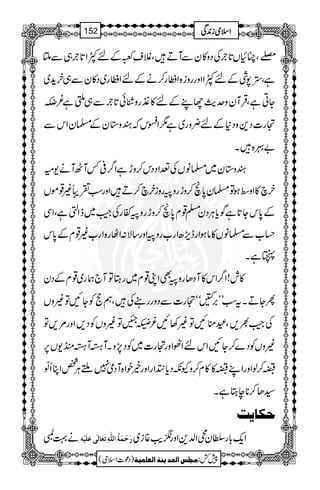 اسلامی زندگی
152
مصلے، چٹائیاں تاجر کی دکان سے آتے ہیں، غلاف کعبہ کے لئے کپڑا تاجر ہی سے ملتا
ہے، ستر پوشی کے لئے کپڑا اور روزہ افطار کرنے کے لئے افطاری دکان سے ہی خریدی
جاتی ہے، قرآن و حدیث چھاپنے کے لئے کاغذ اور روشنائی تاجر سے ہی ملتی ہے غرضکہ
تجارت دین و دنیا کے لئے ضروری ہے مگر افسوس کہ ہندوستان کے مسلمان اس سے
بے بہرہ ہیں۔
ہندوستان میں مسلمانوں کی تعداد دس کروڑ ہے اگر فی کس آٹھ آنے یومیہ
خرچ کا اوسط ہو تو مسلمان پانچ کروڑ روپیہ روز خرچ کرتے ہیں اور سب تقریباً غیر قوموں
کے پاس جاتا ہے گویا ہر دن مسلم قوم پانچ کروڑ روپیہ کفار کی جیب میں ڈالتی ہے، اسی
حساب سے مسلمانوں کا ماہوار ڈیڑھ ارب روپیہ اور سالانہ اٹھارہ ارب غیر قوم کے پاس
پہنچتا ہے۔
کاش! اگر اس کا آدھا روپیہ بھی اپنی قوم میں رہتا تو آج ہماری قوم کے دن
پھر جاتے۔ یہ سب ’’برکتیں‘‘ تجارت سے دور رہنے کی ہیں، ہم حج کو جائیں تو غیروں
کی جیب بھریں، عید منائیں تو غیر کھائیں غرضیکہ جئیں تو غیروں کو دیں اور مریں تو
غیروں کو دے کر جائیں اس لئے اٹھو اور تجارت میں کود پڑو۔ آہستہ آہستہ منڈیوں پر
قبضہ کر لو اور اپنے قبضہ کا کام کرو کیونکہ دیانتدار اور خیر خواہ آدمی نہیں ملتے ہر شخص اپنا اُلّو
سیدھا کرنا چاہتا ہے۔
حکایت
ایک بار سلطان محی الدین اورنگزیب غازی رَحْمَةُ اللّٰهِ تَعَالٰی عَلَیْهِ نے بہت لمبی
پیش کش: مجلس المدینة العلمیة (دعوت اسلامی)